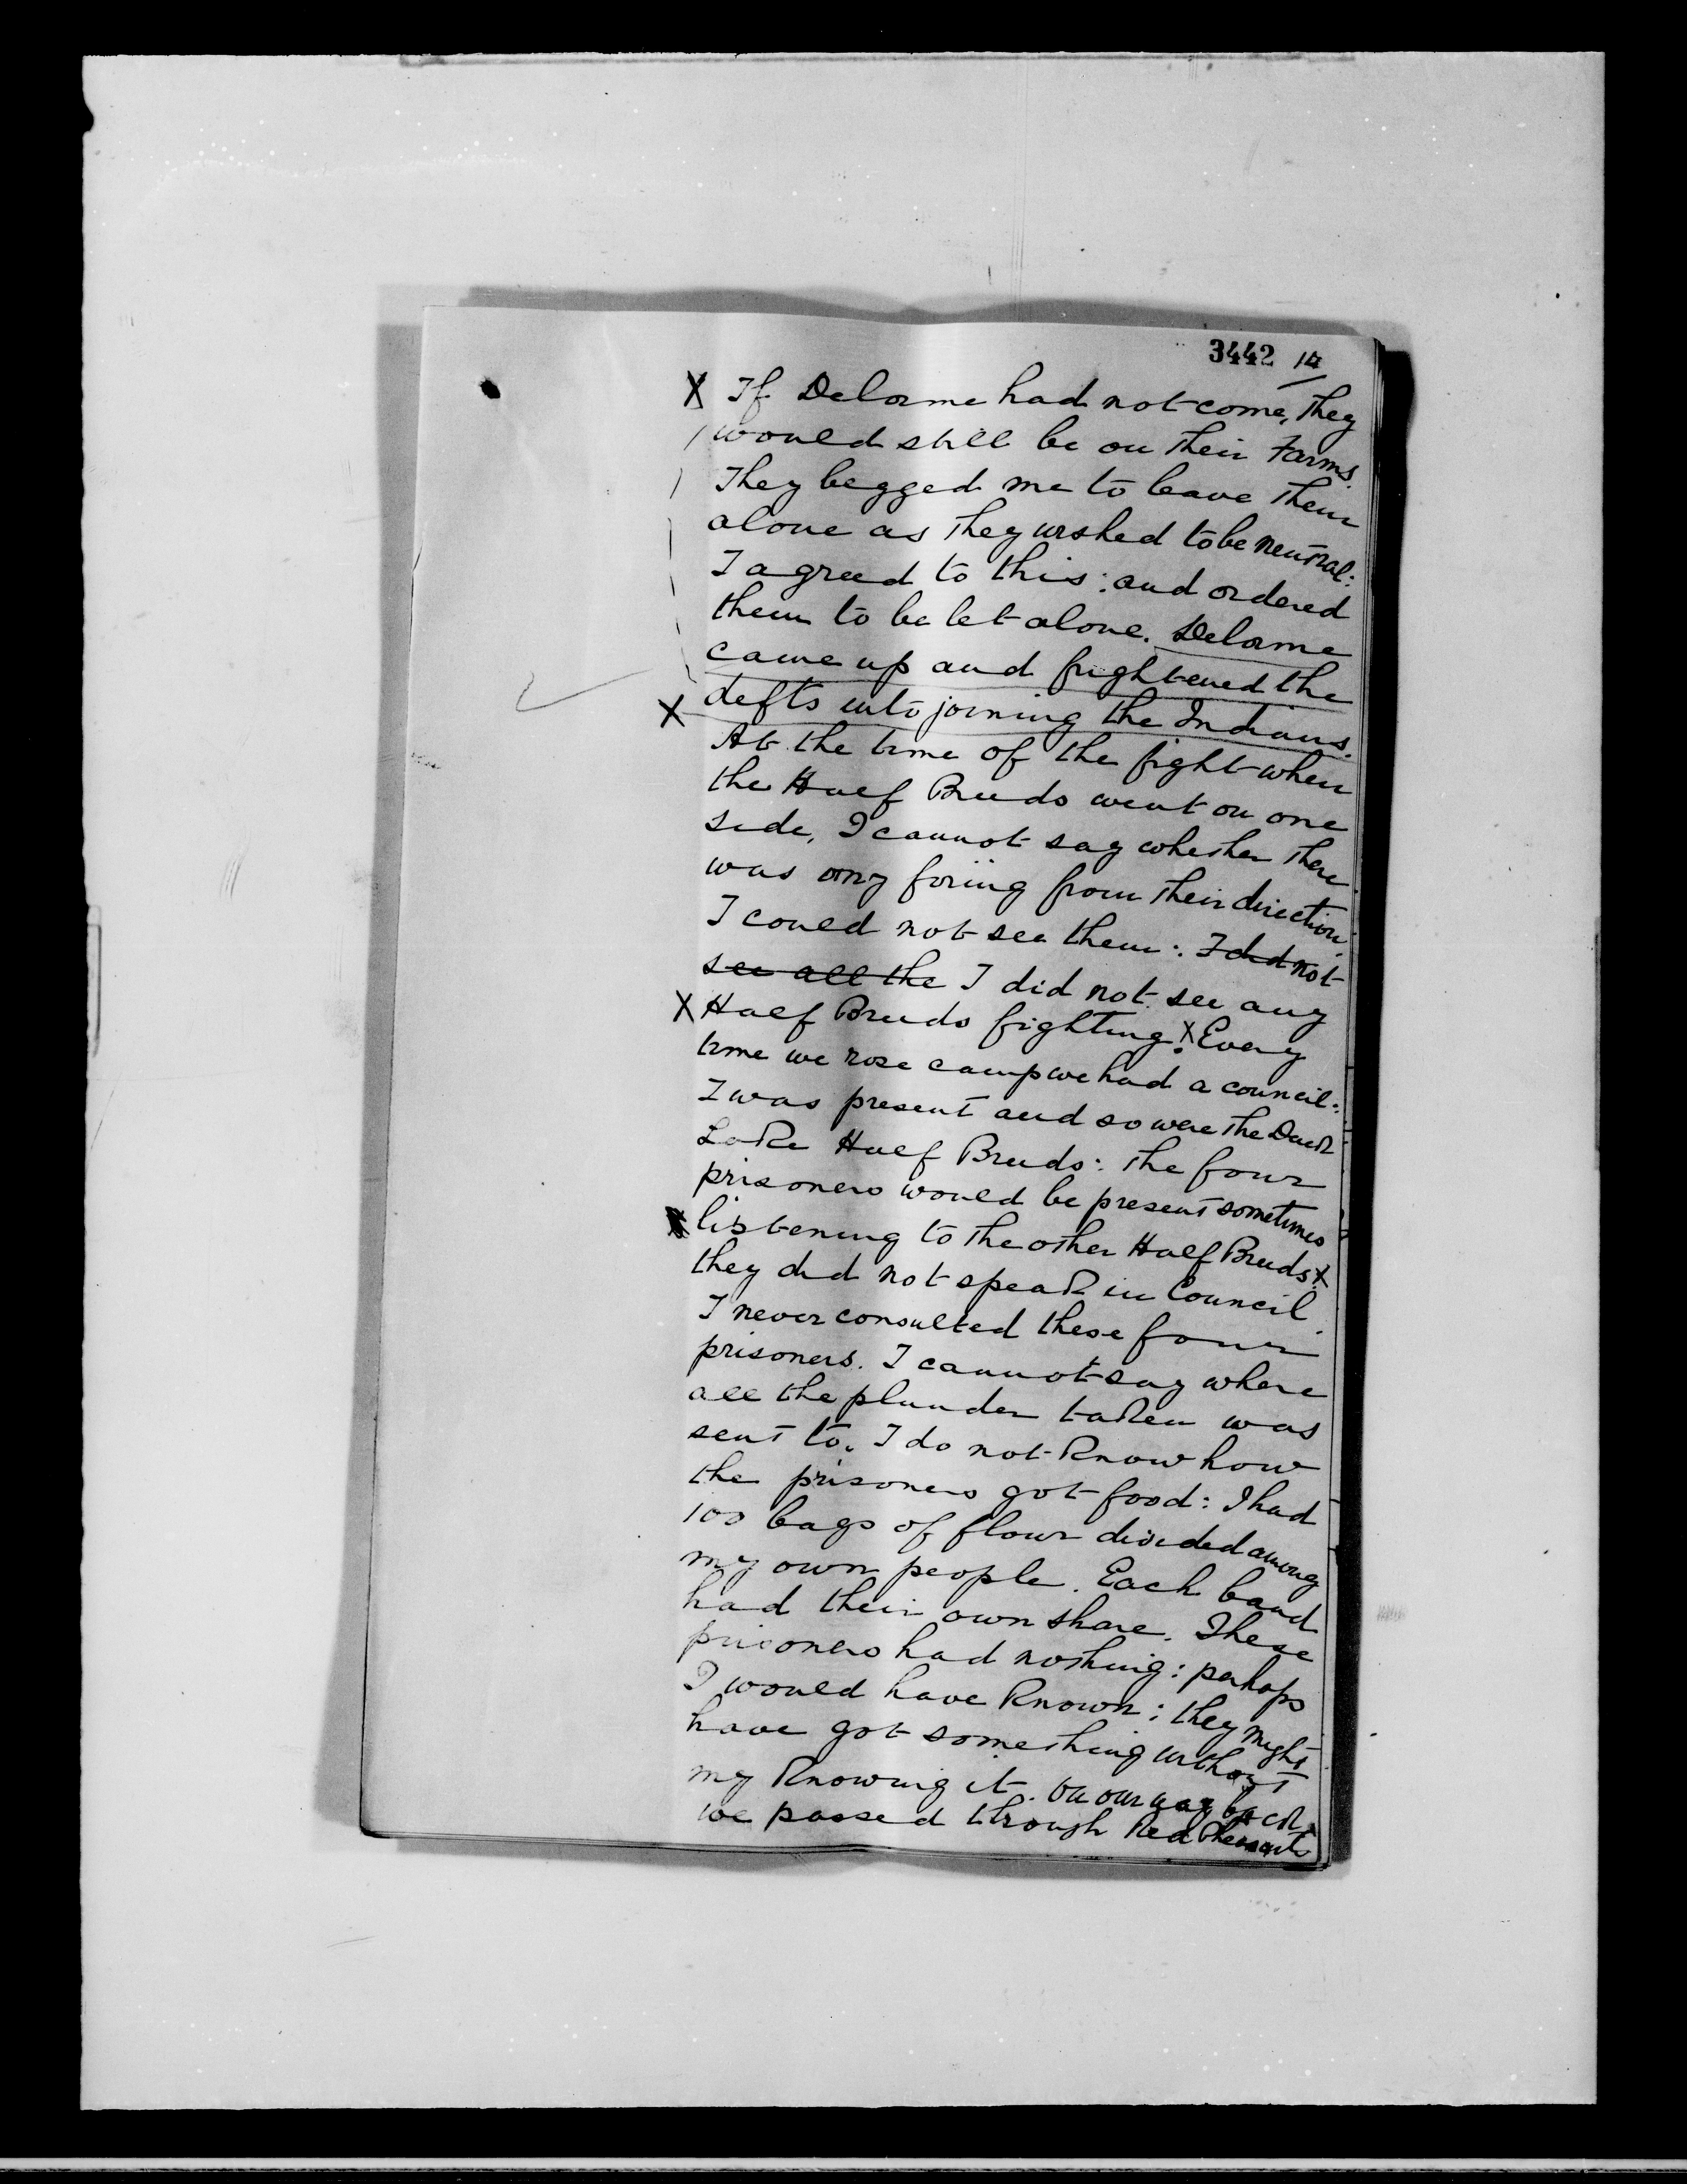 3442 14
X If Delorme had not come, they
would still be on their Farms.
They begged me to leave them
alone as they wished to be neutral:
I agreed to this: and ordered
them to be let alone. Delorme
came up and frightened the
X defts into joining the Indians.
At the time of the fight when
the Half Breeds went on one
side, I cannot say whether there
was any firing from their direction
I could not see them: I did not
see all the I did not see any
X Half Breeds fighting. X Every
time we rose camp we had a council:
I was present and so were the Duck
Lake Half Breeds: the four
prisoners would be present sometimes
listening to the other Half Breeds: X
they did not speak in Council.
I never consulted these four
prisoners. I cannot say where
all the plunder taken was
sent to. I do not know how
the prisoners got food: I had
100 bags of flour divided among
my own people. Each band
had their own share. These
prisoners had nothing: perhaps
I would have known: they might
have got something without
my knowing it. On our way back
we passed through Red Pheasants